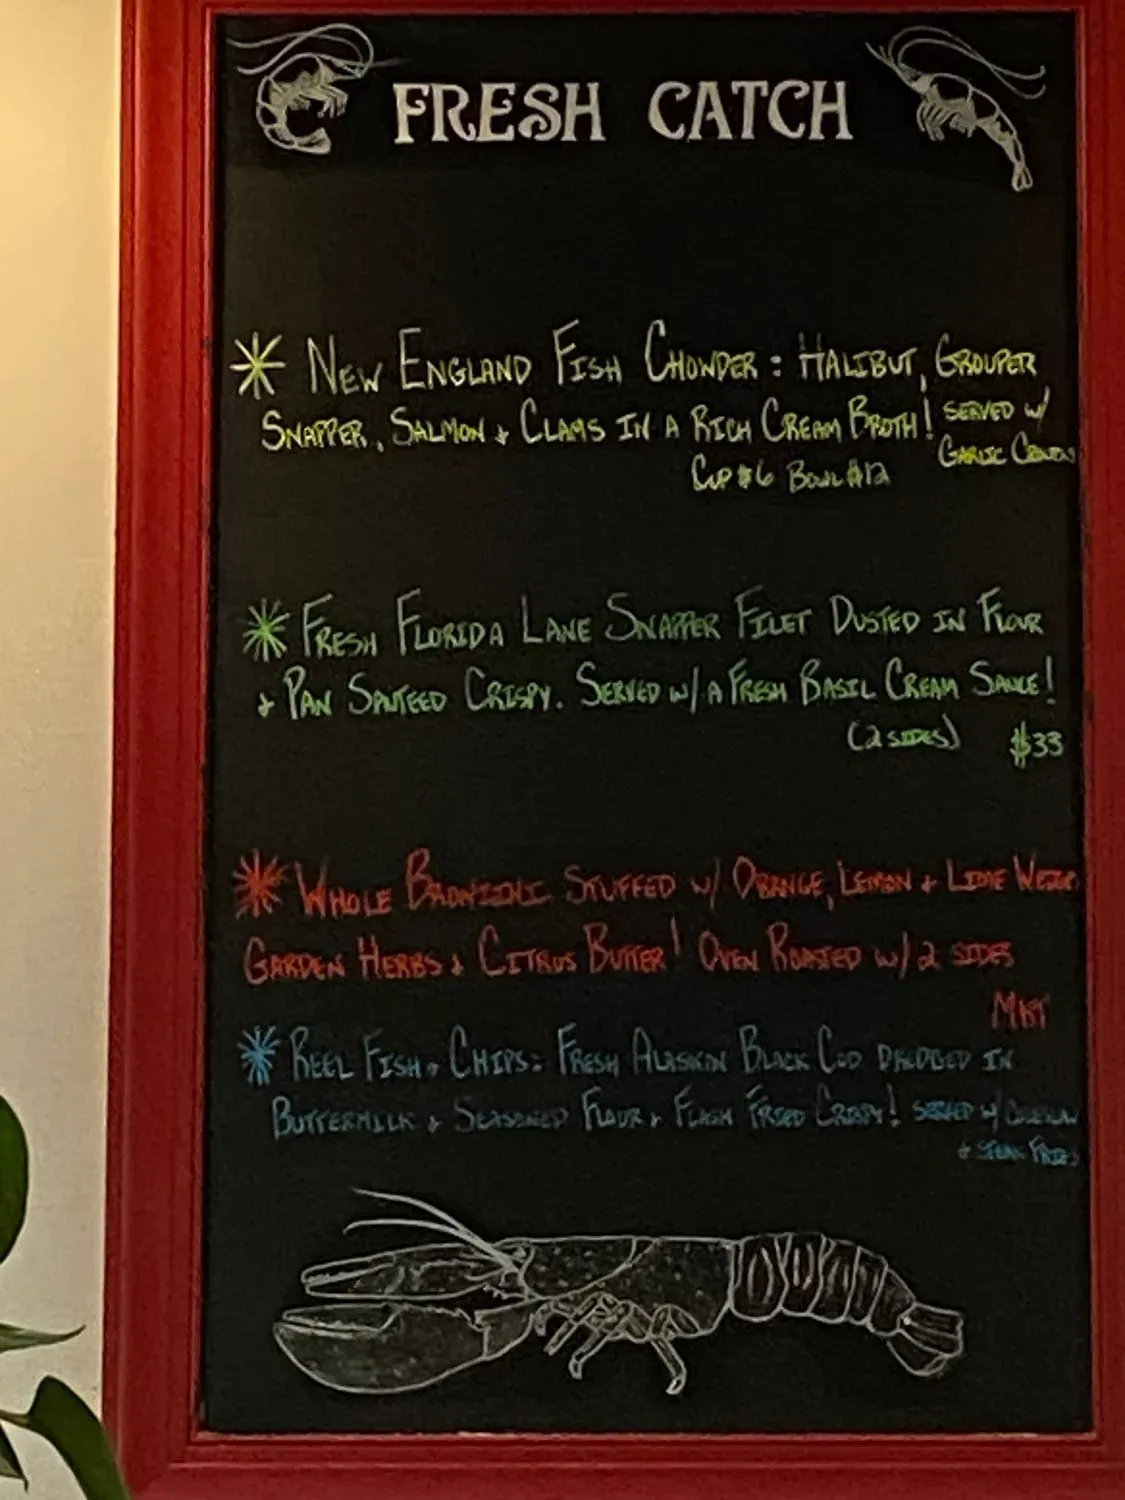 FRESH CATCH
NEW ENGLAND FISH CHOWDER: HALIBUT, GROUPER
SNAPPER, SALMON & CLAMS IN A RICH CREAM BROTH! SERVED W/
GARLIC
CUP $6 BOWL $12
FRESH FLORIDA LANE SNAPPER FILET DUSTED IN FLOUR
& PAN SAUTEED CRISPY. SERVED W/ A FRESH BASIL CREAM SAUCE!
(2 SIDES) $33
WHOLE BRONZINI STUFFED W/ ORANGE, LEMON & LIME
GARDEN HERBS & CITRUS BUTTER! OVEN ROASTED W/ 2 SIDES
MKT
REEL FISH & CHIPS: FRESH ALASKAN BLACK COD DREDGED IN
BUTTERMILK & SEASONED FLOUR & FLASH FRIED CRISPY! SERVED W/ COLESLAW
& STEAK FRIES